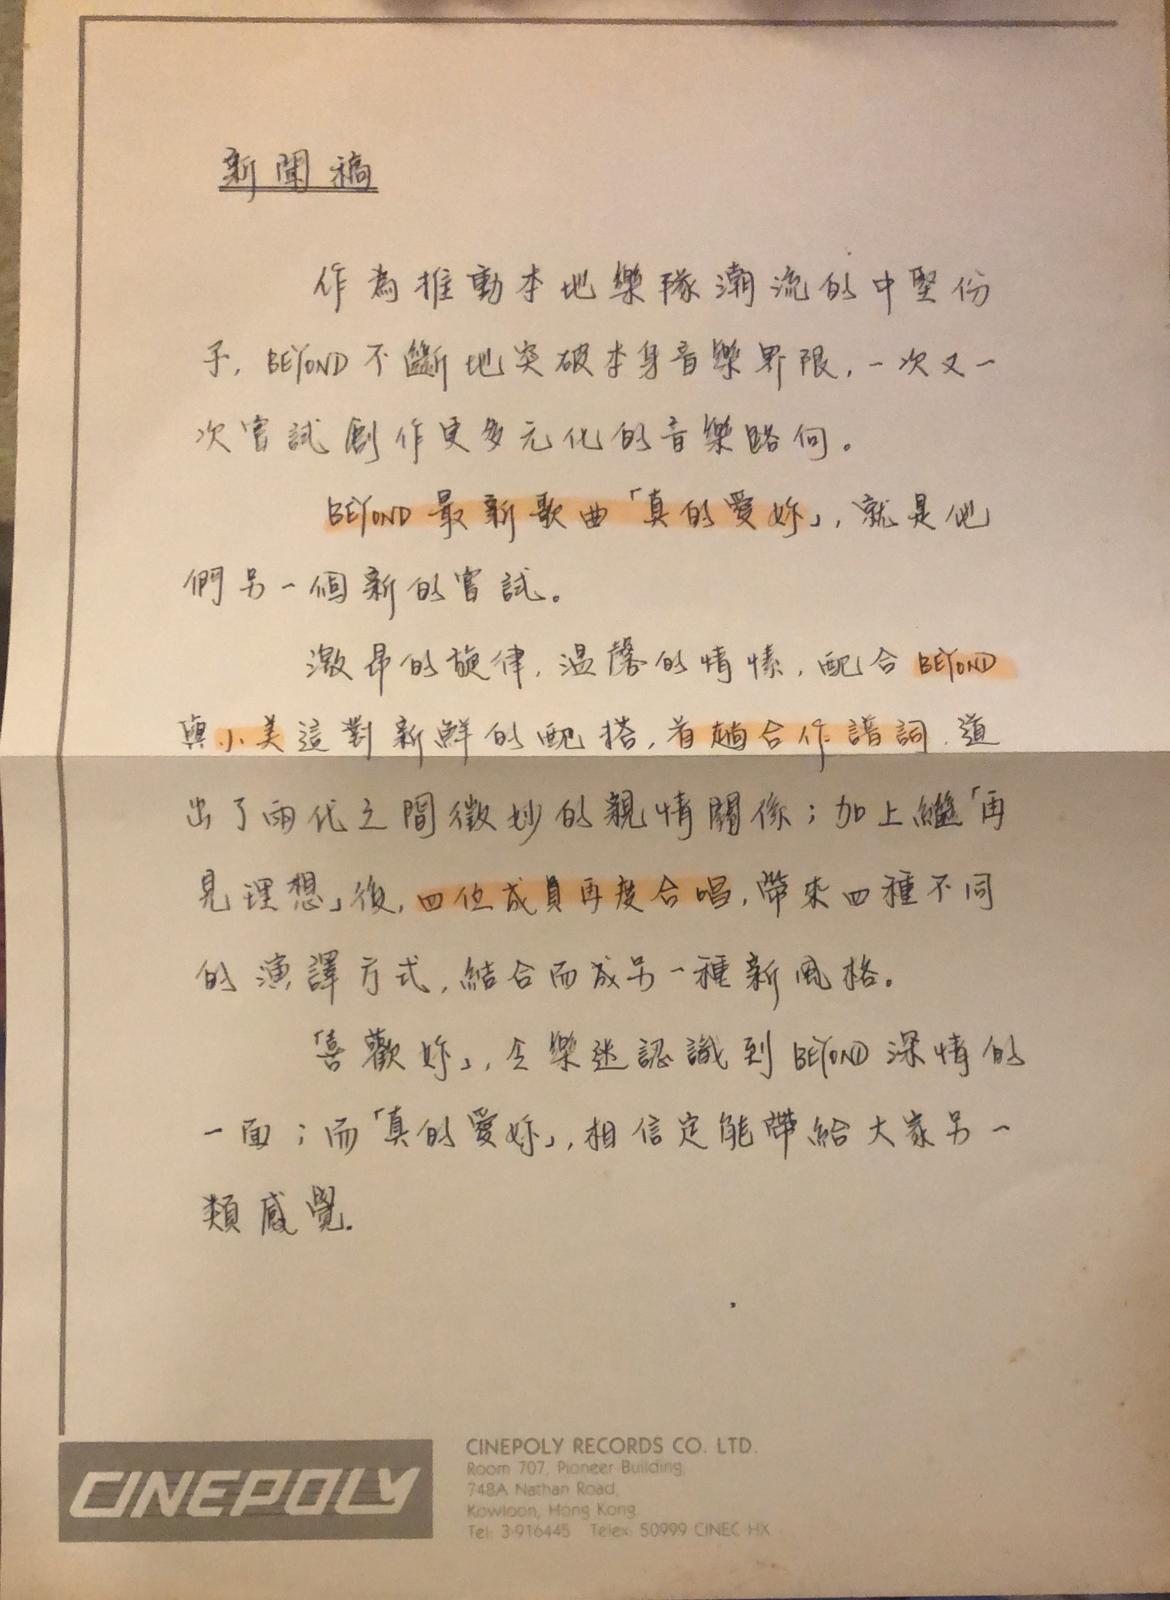 新聞稿
作為推動本地樂隊潮流的中堅份
子，BEYOND不斷地突破本身音樂界限，一次又一
次嘗試創作更多元化的音樂路向。
BEYOND最新歌曲「真的愛妳」，就是他
們另一個新的嘗試。
激昂的旋律，溫馨的情愫，配合BEYOND
與小美這對新鮮的配搭，首趟合作譜詞，道
出了兩代之間微妙的親情關係；加上繼「再
見理想」後，四位成員再度合唱，帶來四種不同
的演譯方式，結合而成另一種新風格。
「喜歡妳」，令樂迷認識到BEYOND深情的
一面；而「真的愛妳」，相信定能帶給大家另一
類感覺。
CINEPOLY
CINEPOLY RECORDS CO. LTD.
Room 707, Pioneer Building,
748A Nathan Road,
Kowloon, Hong Kong.
Tel: 3-916445 Telex: 50999 CINEC HX